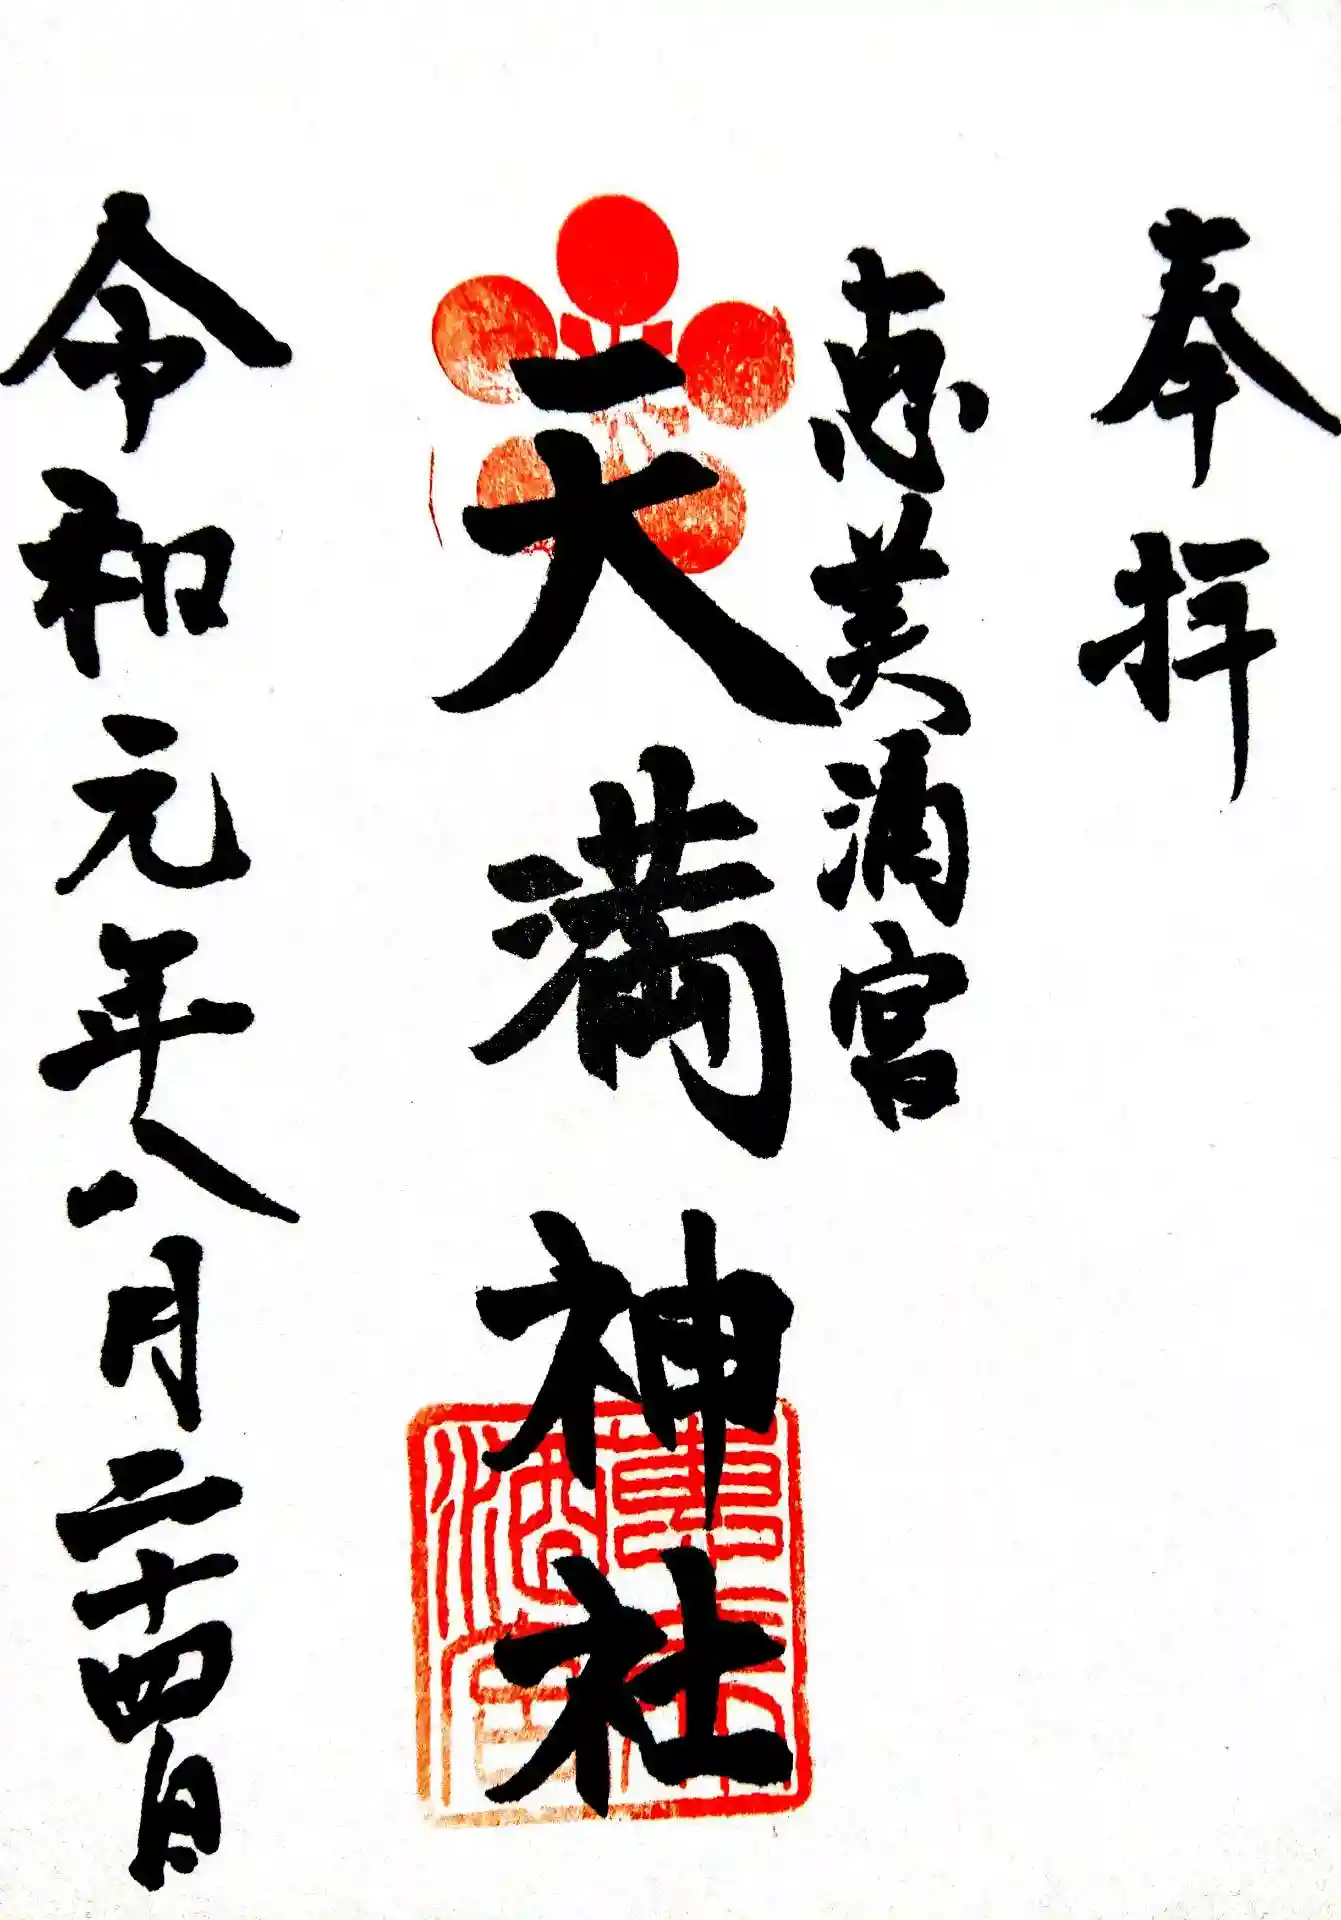 奉拝
恵美酒宮
天満神社
令和元年八月二十四日